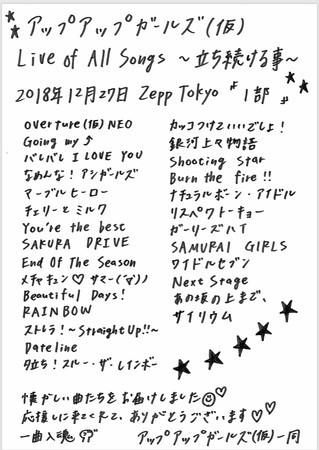 アップアップガールズ(仮)
Live of All Songs ～立ち続ける事～
2018年12月27日 Zepp Tokyo #1部#
overture(仮)NEO
Going my ↑
バレバレ I LOVE YOU
なめんな！アシガールズ
マーブルヒーロー
チェリーとミルク
You're the best
SAKURA DRIVE
End Of The Season
メチャキュン♡サマー(´▽`)ノ
Beautiful Days!
RAINBOW
ストレラ！～Straight Up!!～
Dateline
夕立ち！スルー・ザ・レインボー
カッコつけていいでしょ！
銀河上々物語
Shooting Star
Burn the fire!!
ナチュラルボーン・アイドル
リスペクトーキョー
ガーリーズハイ
SAMURAI GIRLS
ワイドルセブン
Next Stage
あの坂の上まで、
サイリウム
懐かしい曲たちをお届けしました☺♡
応援しに来てくれて、ありがとうございます♡♡
一曲入魂
アップアップガールズ(仮)一同